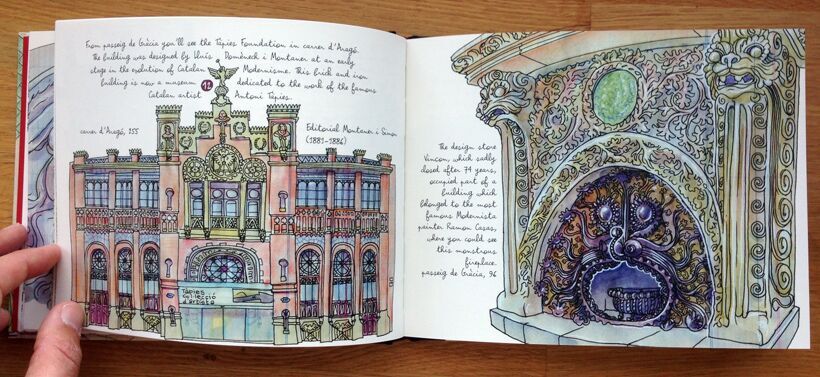 From passeig de Gràcia you'll see the Tàpies Foundation in carrer d'Aragó.
The building was designed by Lluís Domènech i Montaner at an early
stage in the evolution of Catalan Modernisme. This brick and iron
building is now a museum 12 dedicated to the work of the famous
Catalan artist Antoni Tàpies.
carrer d'Aragó, 255
Editorial Montaner i Simon
(1881-1886)
Tàpies
Col·lecció
The design store
Vinçon, which sadly
closed after 74 years,
occupied part of a
building which
belonged to the most
famous Modernista
painter Ramon Casas,
where you could see
this monstrous
fireplace.
passeig de Gràcia, 96